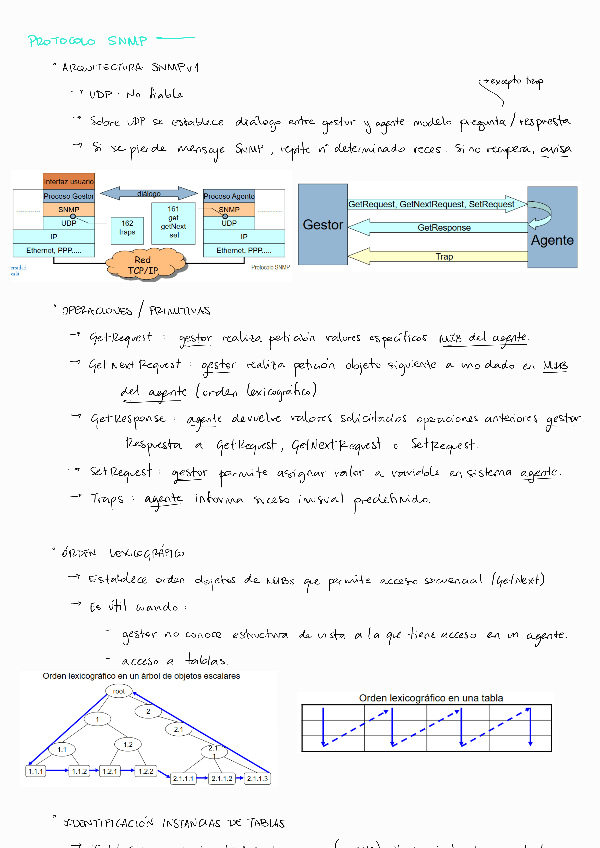 PROTOCOLO SNMP
ARQUITECTURA SNMPv1
→ excepto trap
UDP. No fiable
Sobre UDP se establece diálogo entre gestor y agente modelo pregunta/respuesta
→ Si se pierde mensaje SNMP, repite nº determinado veces. Si no recupera, avisa
Interfaz usuario
Proceso Gestor
diálogo
Proceso Agente
SNMP
162
traps
161
get
getNext
set
SNMP
UDP
UDP
IP
IP
Ethernet, PPP.....
Red
TCP/IP
Ethernet, PPP.....
Protocolo SNMP
Gestor
GetRequest, GetNextRequest, SetRequest
GetResponse
Trap
Agente
OPERACIONES / PRIMITIVAS
→ GetRequest : gestor realiza petición valores específicos MIB del agente.
→ GetNextRequest : gestor realiza petición objeto siguiente a uno dado en MIB
del agente (orden lexicográfico)
→ GetResponse : agente devuelve valores solicitados operaciones anteriores gestor
Respuesta a GetRequest, GetNextRequest o SetRequest.
→ SetRequest : gestor permite asignar valor a variable en sistema agente.
→ Traps : agente informa suceso inusual predefinido.
ÓRDEN LEXICOGRÁFICO
→ Establece orden objetos de MIBs que permite acceso secuencial (GetNext)
→ Es útil cuando :
- gestor no conoce estructura de vista a la que tiene acceso en un agente.
- acceso a tablas.
Orden lexicográfico en un árbol de objetos escalares
root
1
2
2.1
1.1
1.2
2.1.
1
1.1.1
1.1.2
1.2.1
1.2.2
2.1.1.1
2.1.1.2
2.1.1.3
Orden lexicográfico en una tabla
IDENTIFICACIÓN INSTANCIAS DE TABLAS